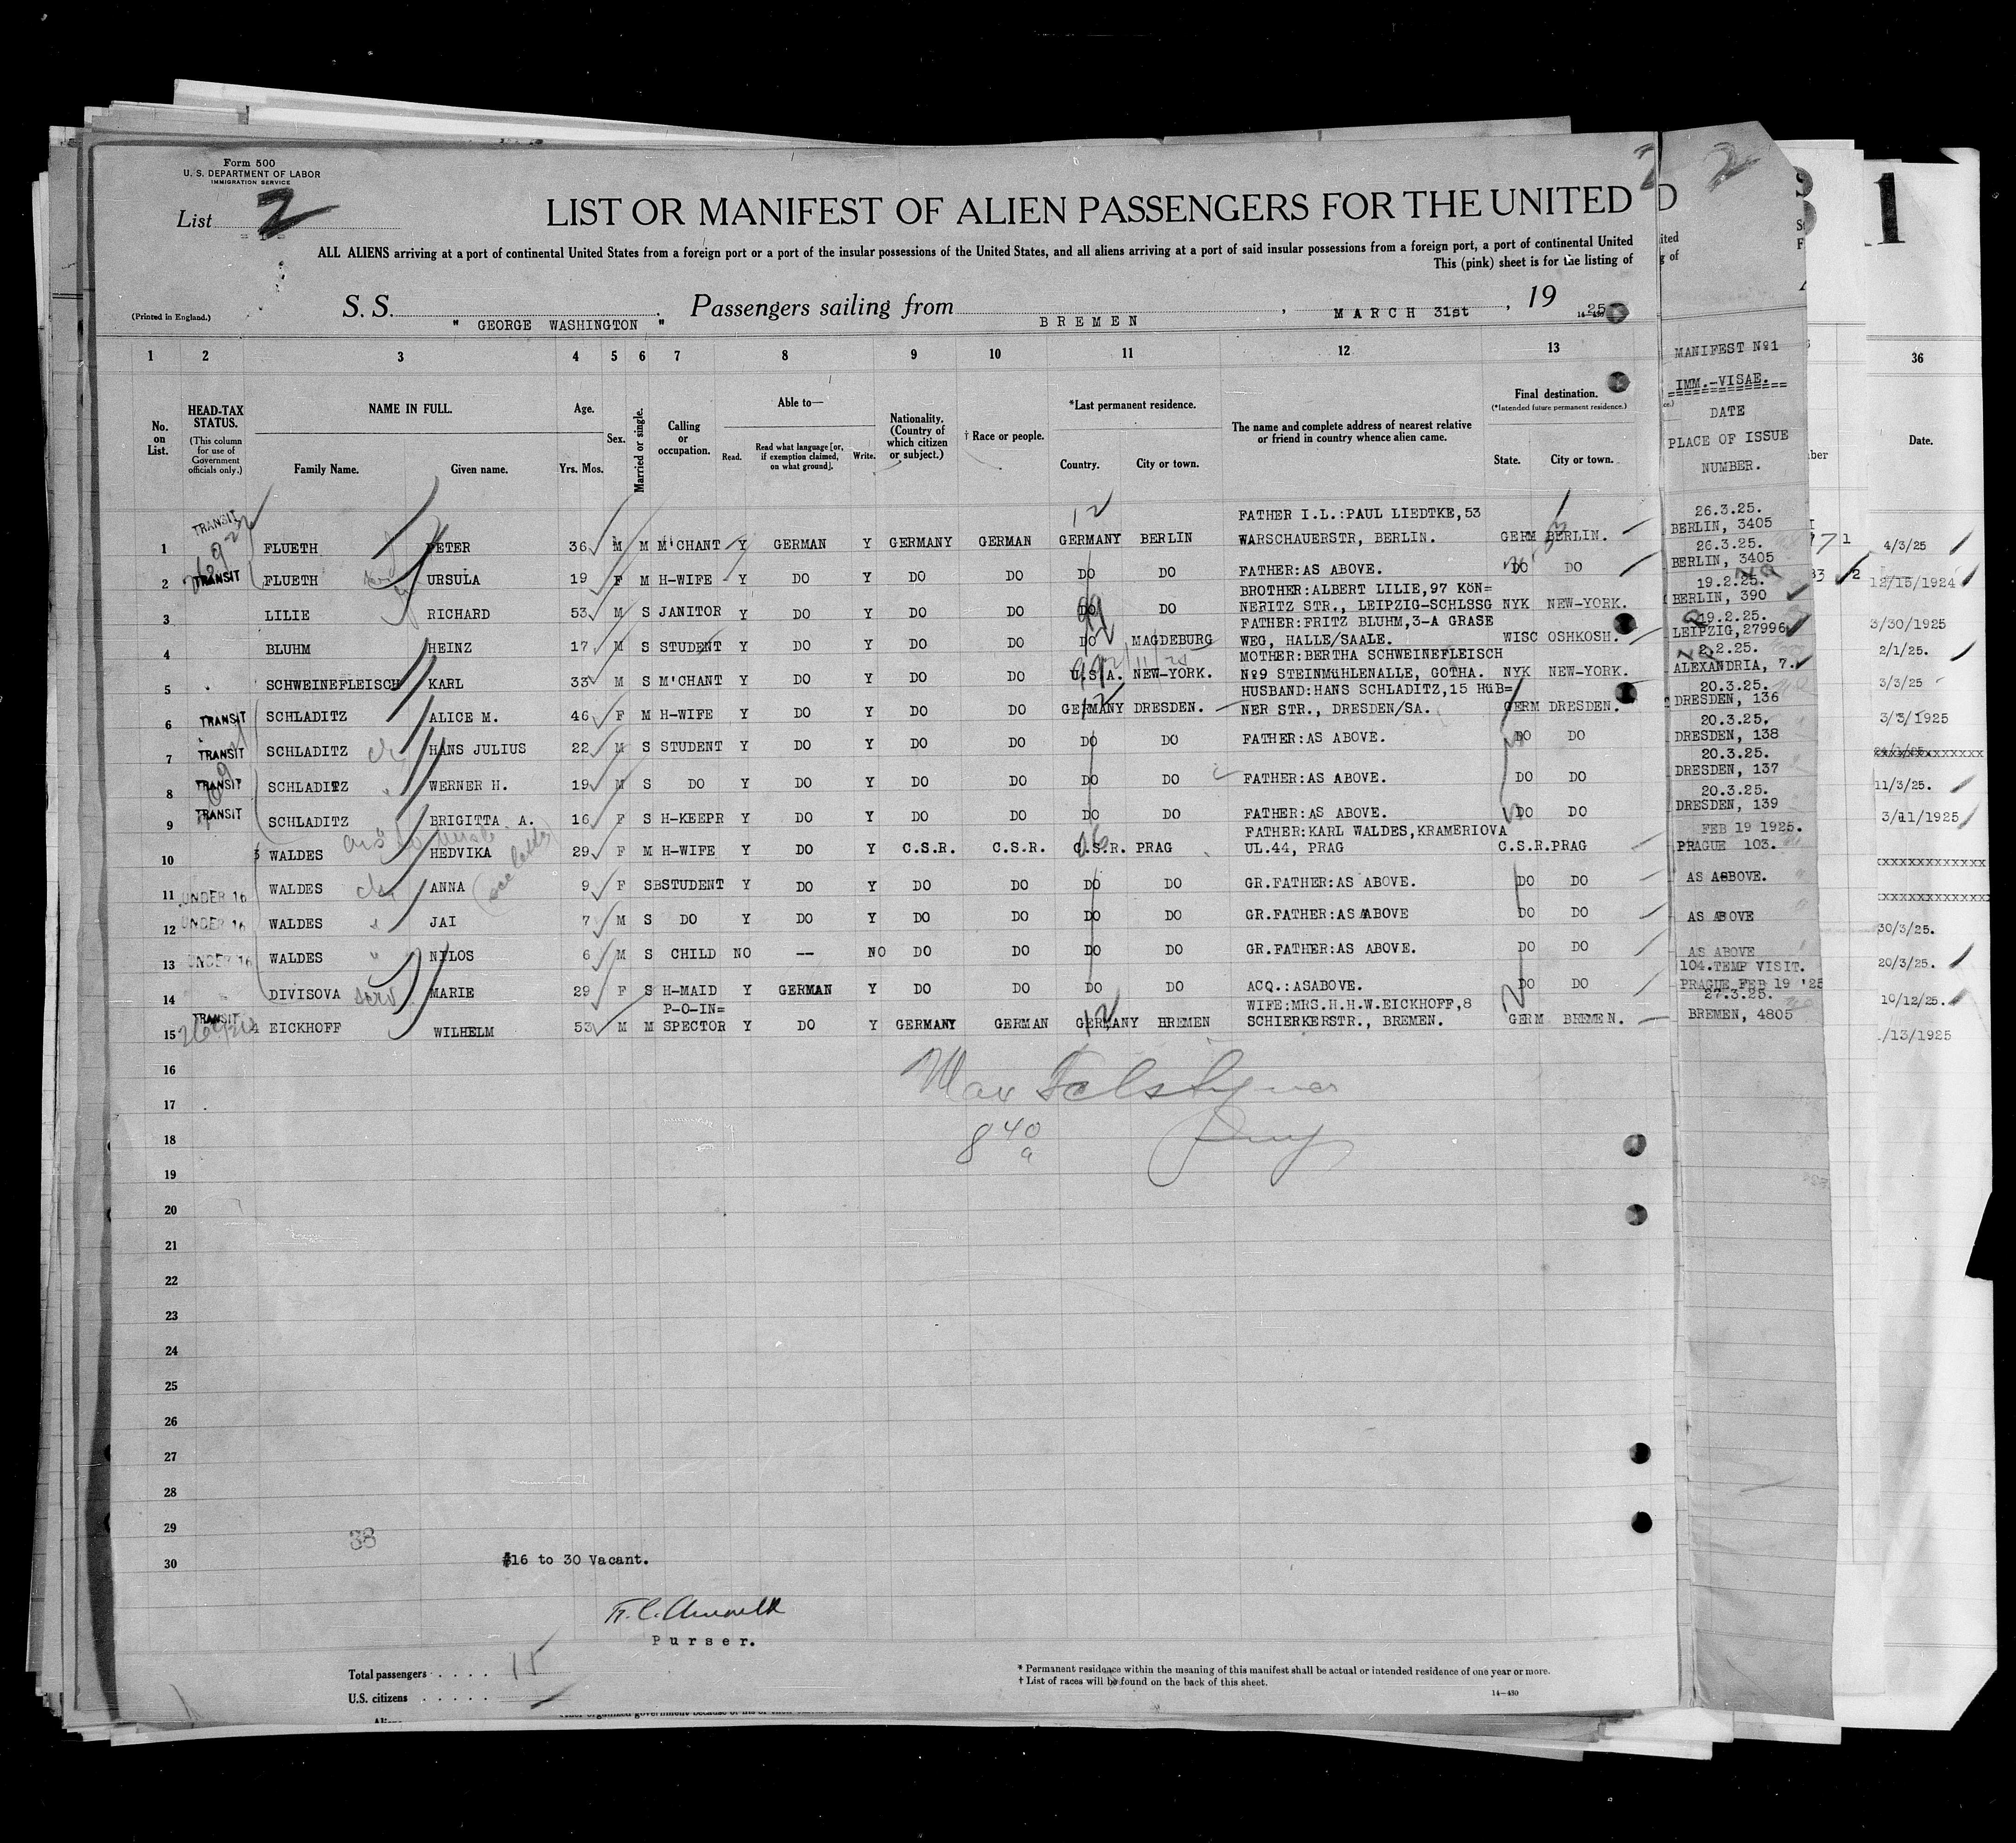 Form 500
U. S. DEPARTMENT OF LABOR
IMMIGRATION SERVICE
List 2
LIST OR MANIFEST OF ALIEN PASSENGERS FOR THE UNITED
ALL ALIENS arriving at a port of continental United States from a foreign port or a port of the insular possessions of the United States, and all aliens arriving at a port of said insular possessions from a foreign port, a port of continental United
This (pink) sheet is for the listing of
(Printed in England.)
S. S. " GEORGE WASHINGTON " Passengers sailing from BREMEN , MARCH 31st , 19 25
1 2 3 4 5 6 7 8 9 10 11 12 13
No. on List.
HEAD-TAX STATUS.
(This column for use of Government officials only.)
NAME IN FULL.
Family Name. Given name.
Age.
Yrs. Mos.
Sex.
Married or single.
Calling or occupation.
Able to—
Read. Read what language [or, if exemption claimed, on what ground]. Write.
Nationality. (Country of which citizen or subject.)
† Race or people.
*Last permanent residence.
Country. City or town.
The name and complete address of nearest relative or friend in country whence alien came.
Final destination.
(*Intended future permanent residence.)
State. City or town.
MANIFEST Nº1
IMM.-VISAE.
DATE
PLACE OF ISSUE
NUMBER.
36
Date.
FATHER I.L.:PAUL LIEDTKE,53
1 TRANSIT FLUETH PETER 36 M M M'CHANT Y GERMAN Y GERMANY GERMAN GERMANY BERLIN WARSCHAUERSTR, BERLIN. GERM BERLIN. 26.3.25. BERLIN, 3405
2 TRANSIT FLUETH URSULA 19 F M H-WIFE Y DO Y DO DO DO DO FATHER:AS ABOVE. DO DO 26.3.25. BERLIN, 3405
BROTHER:ALBERT LILIE,97 KÖN=
3 LILIE RICHARD 53 M S JANITOR Y DO Y DO DO DO DO NERITZ STR., LEIPZIG-SCHLSSG NYK NEW-YORK. 19.2.25. BERLIN, 390
FATHER:FRITZ BLUHM,3-A GRASE
4 BLUHM HEINZ 17 M S STUDENT Y DO Y DO DO DO MAGDEBURG WEG, HALLE/SAALE. WISC OSHKOSH. 19.2.25. LEIPZIG,27996
MOTHER:BERTHA SCHWEINEFLEISCH
5 SCHWEINEFLEISCH KARL 33 M S M'CHANT Y DO Y DO DO U.S.A. NEW-YORK. Nº9 STEINMüHLENALLE, GOTHA. NYK NEW-YORK. 2.2.25. ALEXANDRIA, 7.
HUSBAND:HANS SCHLADITZ,15 HüB=
6 TRANSIT SCHLADITZ ALICE M. 46 F M H-WIFE Y DO Y DO DO GERMANY DRESDEN. NER STR., DRESDEN/SA. GERM DRESDEN. 20.3.25. DRESDEN, 136
7 TRANSIT SCHLADITZ HANS JULIUS 22 M S STUDENT Y DO Y DO DO DO DO FATHER:AS ABOVE. DO DO 20.3.25. DRESDEN, 138
8 TRANSIT SCHLADITZ WERNER H. 19 M S DO Y DO Y DO DO DO DO FATHER:AS ABOVE. DO DO 20.3.25. DRESDEN, 137
9 TRANSIT SCHLADITZ BRIGITTA A. 16 F S H-KEEPR Y DO Y DO DO DO DO FATHER:AS ABOVE. DO DO 20.3.25. DRESDEN, 139
FATHER:KARL WALDES,KRAMERIOVA
10 WALDES HEDVIKA 29 F M H-WIFE Y DO Y C.S.R. C.S.R. C.S.R. PRAG UL.44, PRAG C.S.R.PRAG FEB 19 1925. PRAGUE 103.
11 UNDER 16 WALDES ANNA 9 F SBSTUDENT Y DO Y DO DO DO DO GR.FATHER:AS ABOVE. DO DO AS ASBOVE.
12 UNDER 16 WALDES JAI 7 M S DO Y DO Y DO DO DO DO GR.FATHER:AS ABOVE DO DO AS ABOVE
13 UNDER 16 WALDES NILOS 6 M S CHILD NO -- NO DO DO DO DO GR.FATHER:AS ABOVE. DO DO AS ABOVE
14 DIVISOVA serv MARIE 29 F S H-MAID Y GERMAN Y DO DO DO DO ACQ.:ASABOVE. DO DO 104.TEMP VISIT. PRAGUE FEB 19 '25
P-O-IN= WIFE:MRS.H.H.W.EICKHOFF,8
15 TRANSIT EICKHOFF WILHELM 53 M M SPECTOR Y DO Y GERMANY GERMAN GERMANY BREMEN SCHIERKERSTR., BREMEN. GERM BREMEN. 27.3.25. BREMEN, 4805
4/3/25
12/15/1924
3/30/1925
2/1/25.
3/3/25
3/3/1925
11/3/25.
3/11/1925
30/3/25.
20/3/25.
10/12/25.
/13/1925
16
17
18
8 40 a
19
20
21
22
23
24
25
26
27
28
29
30
38
#16 to 30 Vacant.
Purser.
Total passengers . . . . . 15
U.S. citizens . . . . . .
Aliens
* Permanent residence within the meaning of this manifest shall be actual or intended residence of one year or more.
† List of races will be found on the back of this sheet.
14—430